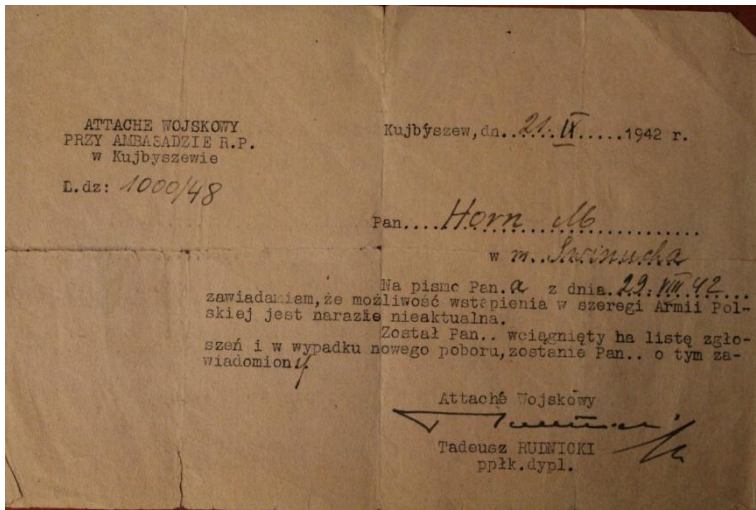 ATTACHE WOJSKOWY
PRZY AMBASADZIE R.P.
w Kujbyszewie
L.dz: 1000/48
Kujbyszew,dn...21.IX.....1942 r.
Pan....Horn M...........
w m. Swinucha
Na pismo Pan.a z dnia.29.VIII 42...
zawiadamiam,że możliwość wstąpienia w szeregi Armii Pol-
skiej jest narazie nieaktualna.
Został Pan.. wciągnięty ha listę zgło-
szeń i w wypadku nowego poboru,zostanie Pan.. o tym za-
wiadomiony.
Attaché Wojskowy
Tadeusz RUDNICKI
ppłk.dypl.